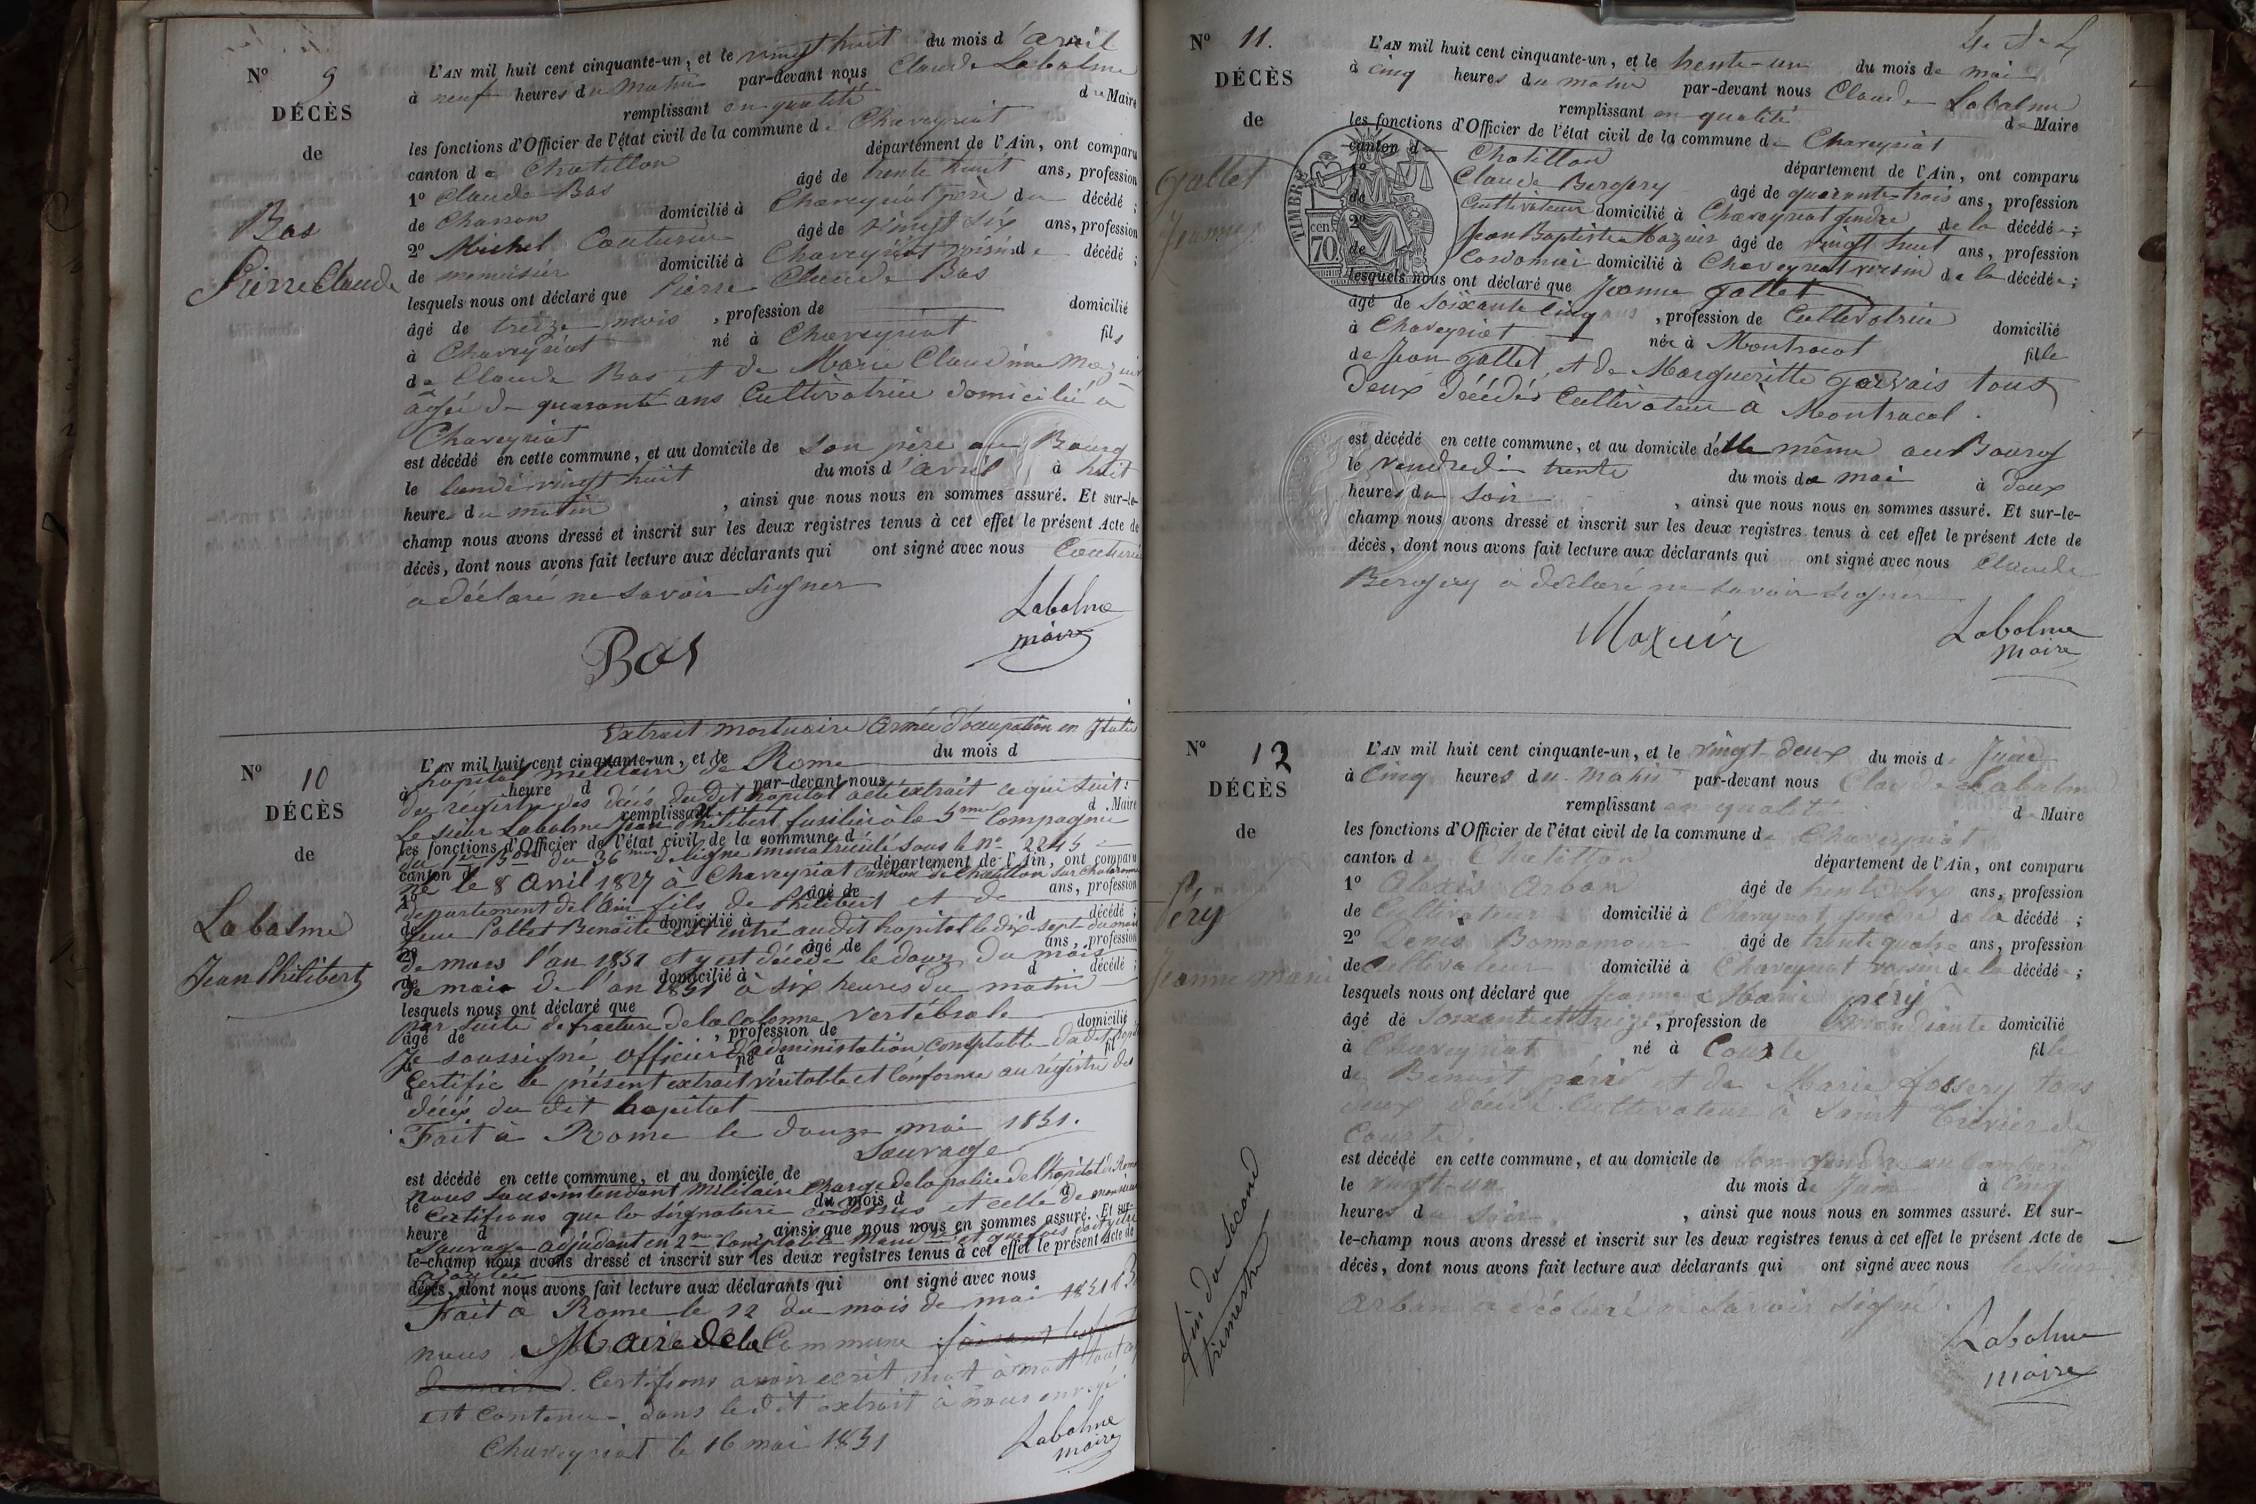 N° 9
DÉCÈS
de
Bas
Pierre Claude
L'AN mil huit cent cinquante-un, et le vingt huit du mois d'avril
à neuf heures du matin par-devant nous Claude Labalme
remplissant en qualité de Maire
les fonctions d'Officier de l'état civil de la commune de Chaveyriat
canton de Chatillon département de l'Ain, ont comparu
1° Claude Bas âgé de trente huit ans, profession
de Charron domicilié à Chaveyriat père du décédé ;
2° Michel Couturier âgé de vingt six ans, profession
de menuisier domicilié à Chaveyriat voisin d décédé ;
lesquels nous ont déclaré que Pierre Claude Bas
âgé de treize mois , profession de domicilié
à Chaveyriat né à Chaveyriat fils
de Claude Bas et de Marie Claudine Mazuir
âgée de quarante ans Cultivatrice domicilié à
Chaveyriat
est décédé en cette commune, et au domicile de son père au Bourg
le lundi vingt huit du mois d'avril à huit
heures du matin , ainsi que nous nous en sommes assuré. Et sur-le-
champ nous avons dressé et inscrit sur les deux registres tenus à cet effet le présent Acte de
décès, dont nous avons fait lecture aux déclarants qui ont signé avec nous Couturier
a déclaré ne savoir signer
Labalme
maire
Bas
Extrait mortuaire Armée d'ocupation en Italie
N° 10
DÉCÈS
de
Labalme
Jean Philibert
L'AN mil huit cent cinquante-un, et le du mois d
hopital militaire de Rome
à heure d par-devant nous
du registre des décès du dit hopital a été extrait ce qui suit :
remplissant d Maire
Le sieur Labalme Jean Philibert fusilier à la 5me Compagnie
les fonctions d'Officier de l'état civil de la commune d
du 1er Bon du 36me de ligne immatriculé sous le No 2245
canton d département de l'Ain, ont comparu
né le 8 avril 1827 à Chaveyriat canton de Chatillon sur Chalaronne
1° âgé de ans, profession
département de l'Ain fils de Philibert et de
de domicilié à d décédé ;
feue Pollet Benoite est entré au dit hopital le dix-sept du mois
2° âgé de ans, profession
de mars l'an 1851 et y est décédé le douze du mois
de domicilié à d décédé ;
de mai de l'an 1851 à six heures du matin
lesquels nous ont déclaré que
par suite de fracture de la Colonne vertébrale
âgé de profession de domicilié
Je soussigné officier d'administration comptable du dit
à né à fil
Certifie le présent extrait véritable et conforme au régistre des
d
décès du dit hopital
Fait à Rome le douze mai 1851.
Sauvage
est décédé en cette commune, et au domicile de
nous sous-intendant militaire chargé de la police de l'hopital de Rome
le du mois d à
Certifions que la signature ci-dessus est celle de monsieur
heure d , ainsi que nous nous en sommes assuré. Et sur-
Sauvage adjudant en 2me
le-champ nous avons dressé et inscrit sur les deux registres tenus à cet effet le présent Acte de
ajoutée
décès, dont nous avons fait lecture aux déclarants qui ont signé avec nous
Fait à Rome le 12 du mois de mai 1851
nous Maire de la Commune
Certifions avoir ecrit mot à mot tout ce
est contenu dans ledit extrait à nous envoyé
Chaveyriat le 16 mai 1851
Labalme
maire
N° 11.
DÉCÈS
de
Gallet
Jeanne
TIMBRE
70
cen
L'AN mil huit cent cinquante-un, et le trente-un du mois de mai
à cinq heures du matin par-devant nous Claude Labalme
remplissant en qualité de Maire
les fonctions d'Officier de l'état civil de la commune de Chaveyriat
canton de Chatillon département de l'Ain, ont comparu
1° Claude Bergery âgé de quarante-trois ans, profession
de Cultivateur domicilié à Chaveyriat gendre de la décédée ;
2° Jean Baptiste Mazuir âgé de vingt huit ans, profession
de Cordonnier domicilié à Chaveyriat voisin de la décédée ;
lesquels nous ont déclaré que Jeanne Gallet
âgé de soixante cinq ans , profession de Cultivatrice domicilié
à Chaveyriat née à Montracol fille
de Jean Gallet, et de Margueritte Gervais tous
deux décédés Cultivateur à Montracol.
est décédé en cette commune, et au domicile d'elle même au Bourg
le vendredi trente du mois de mai à deux
heures du soir , ainsi que nous nous en sommes assuré. Et sur-le-
champ nous avons dressé et inscrit sur les deux registres tenus à cet effet le présent Acte de
décès, dont nous avons fait lecture aux déclarants qui ont signé avec nous Claude
Bergery a déclaré ne savoir signer
Mazuir
Labalme
maire
N° 12
DÉCÈS
de
Péry
Jeanne marie
Fin du second
trimestre
L'AN mil huit cent cinquante-un, et le vingt-deux du mois de Juin
à Cinq heures du matin par-devant nous Claude Labalme
remplissant en qualité de Maire
les fonctions d'Officier de l'état civil de la commune de Chaveyriat
canton de Chatillon département de l'Ain, ont comparu
1° Alexis Arban âgé de trente six ans, profession
de Cultivateur domicilié à Chaveyriat gendre de la décédé ;
2° Denis Bonnamour âgé de trente quatre ans, profession
de Cultivateur domicilié à Chaveyriat voisin de la décédée ;
lesquels nous ont déclaré que Jeanne Marie péry
âgé de soixante et treize , profession de domicilié
à Chaveyriat né à Courte fille
de Benoit péri et de Marie tous
deux décédé Cultivateur à Saint Trivier de
Courte.
est décédé en cette commune, et au domicile de son gendre au
le vingt-un du mois de Juin à Cinq
heures du soir , ainsi que nous nous en sommes assuré. Et sur-
le-champ nous avons dressé et inscrit sur les deux registres tenus à cet effet le présent Acte de
décès, dont nous avons fait lecture aux déclarants qui ont signé avec nous le sieur
Arban a déclaré ne savoir signé.
Labalme
maire